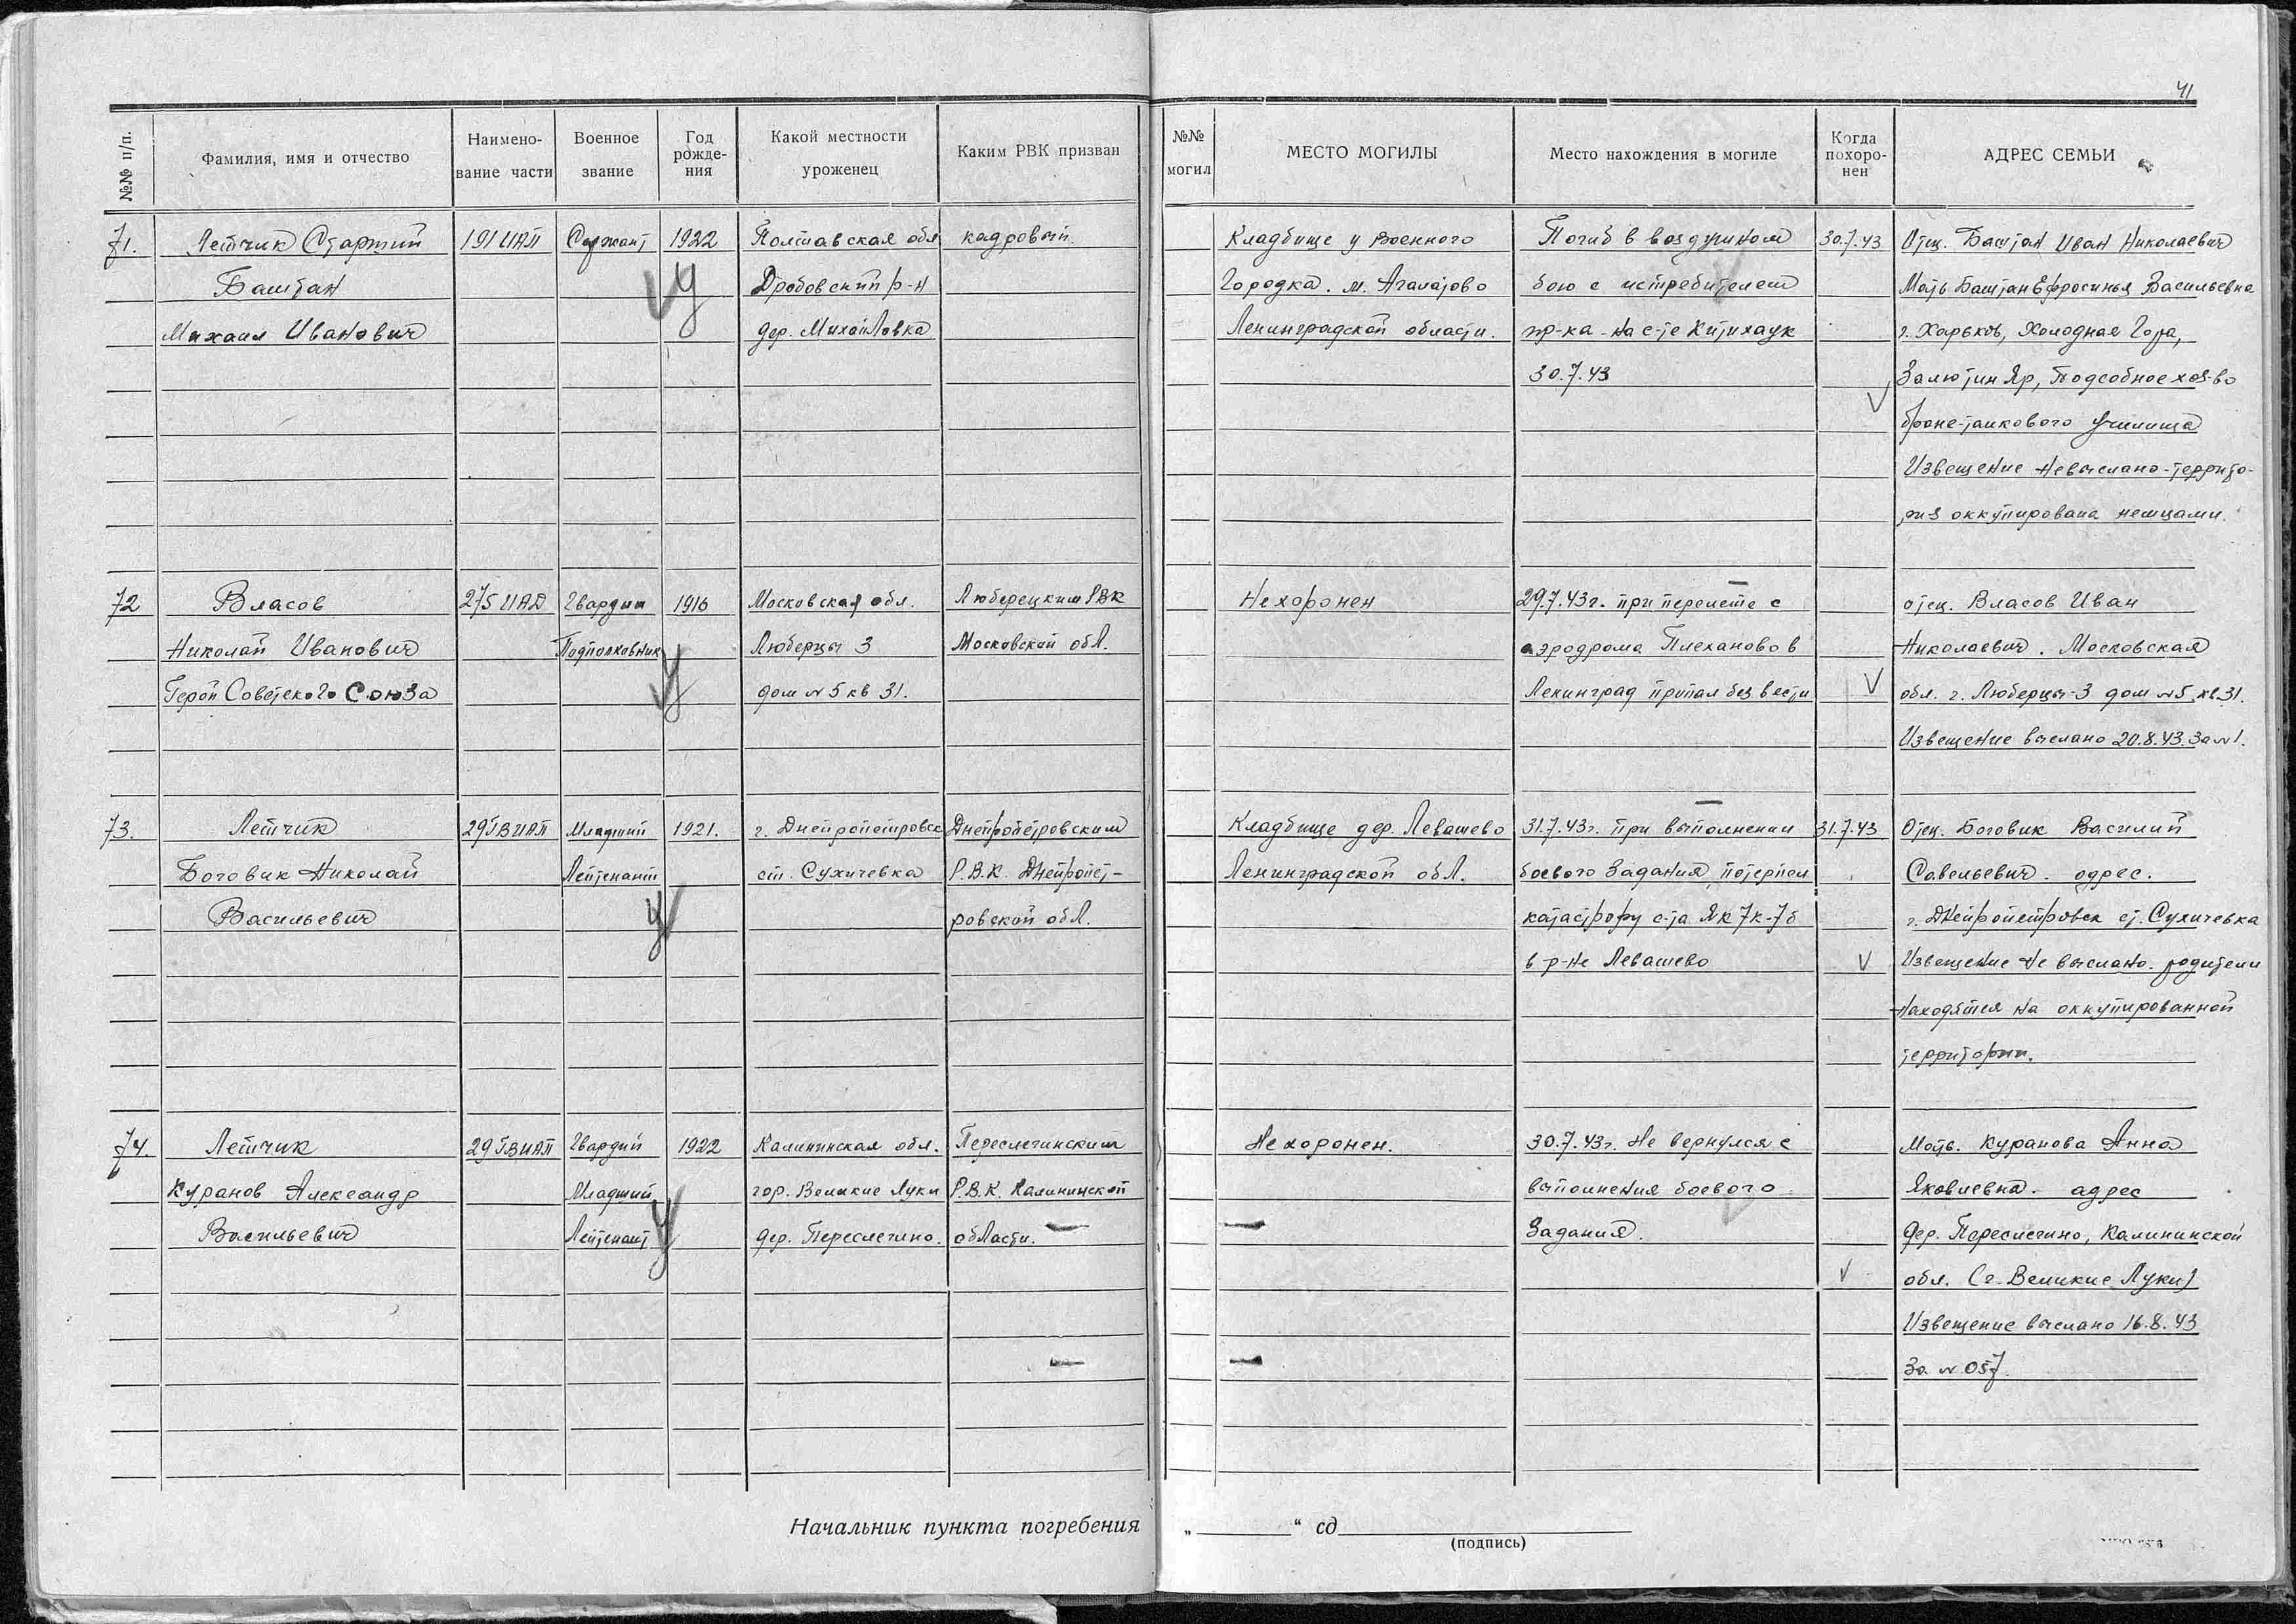 41
№№ п/п.
Фамилия, имя и отчество
Наимено-
вание части
Военное
звание
Год
рожде-
ния
Какой местности
уроженец
Каким РВК призван
№№
могил
МЕСТО МОГИЛЫ
Место нахождения в могиле
Когда
похоро-
нен
АДРЕС СЕМЬИ
71. Летчик Старший 191 ИАП Сержант 1922 Полтавская обл кадровый. Кладбище у Военного Погиб в воздушном 30.7.43 Отец. Баштан Иван Николаевич
Баштан Дробовский р-н Городка. м. Агалатово бою с истребителем Мать Баштан Ефросинья Васильевна
Михаил Иванович дер. Михайловка Ленинградской области. пр-ка на с-те г. Харьков, Холодная Гора,
30.7.43 Залютин Яр, Подсобное хоз-во
броне-танкового училища
Извещение невыслано-террито-
рия оккупирована немцами.
72 Власов 275 ИАД Гвардии 1916 Московская обл. Люберецким РВК Не хоронен 29.7.43г. при перелете с отец. Власов Иван
Николай Иванович Подполковник Люберцы 3 Московской обл. аэродрома Плеханово в Николаевич. Московская
Герой Советского Союза дом №5 кв 31. Ленинград пропал без вести обл. г. Люберцы-3 дом №5 кв.31.
Извещение выслано 20.8.43. За №1.
73. Летчик 29 ГВИАП Младший 1921. г. Днепропетровск Днепропетровским Кладбище дер. Левашево 31.7.43г. при выполнении 31.7.43 Отец. Боговик Василий
Боговик Николай Лейтенант ст. Сухачевка Р.В.К. Днепропет- Ленинградской обл. боевого задания, потерпел Савельевич. адрес.
Васильевич ровской обл. катастрофу с-та Як 7к-7б г. Днепропетровск ст. Сухачевка
в р-не Левашево Извещение не выслано. родители
находятся на оккупированной
территории.
74. Летчик 29 ГВИАП Гвардий 1922 Калининская обл. Переслегинским Не хоронен. 30.7.43г. Не вернулся с Мать. Куранова Анна
Куранов Александр Младший гор. Великие Луки Р.В.К. Калининской выполнения боевого Яковлевна. адрес
Васильевич Лейтенант дер. Переслегино. области. задания. Дер. Переслегино, Калининской
обл. (г. Великие Луки)
Извещение выслано 16.8.43
За № 057.
Начальник пункта погребения „ “ сд
(подпись)